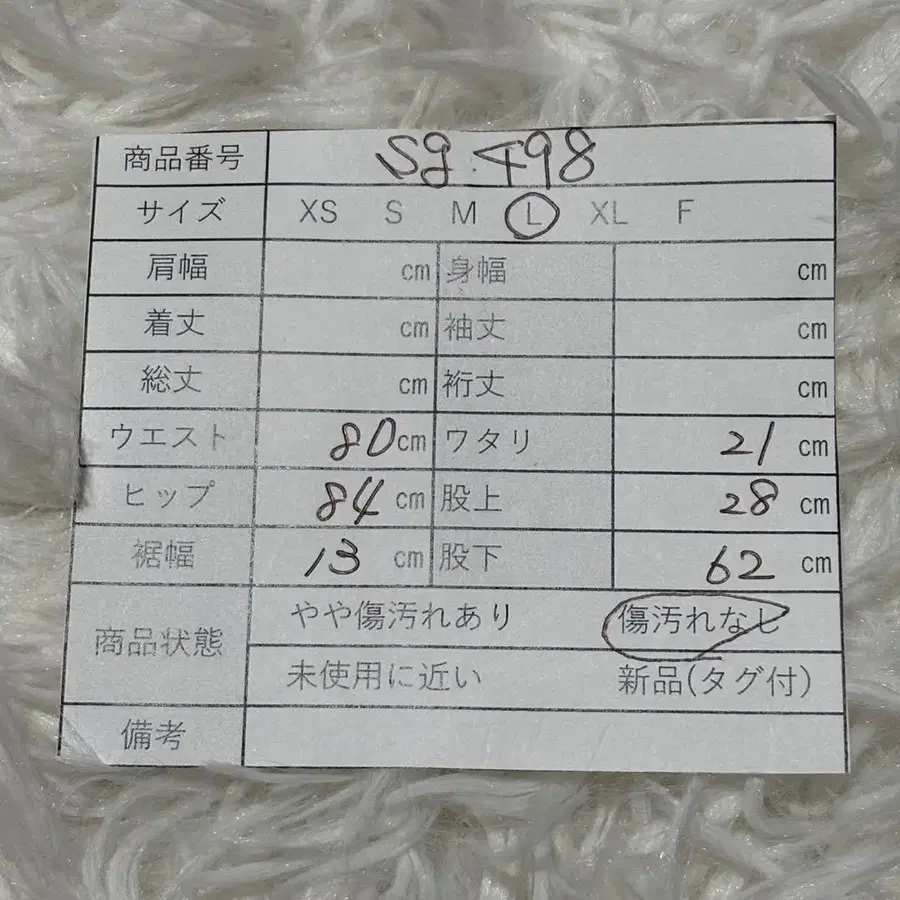 商品番号 sg.498
サイズ XS S M L XL F
肩幅 cm 身幅 cm
着丈 cm 袖丈 cm
総丈 cm 裄丈 cm
ウエスト 80cm ワタリ 21 cm
ヒップ 84 cm 股上 28 cm
裾幅 13 cm 股下 62 cm
商品状態 やや傷汚れあり 傷汚れなし
未使用に近い 新品(タグ付)
備考